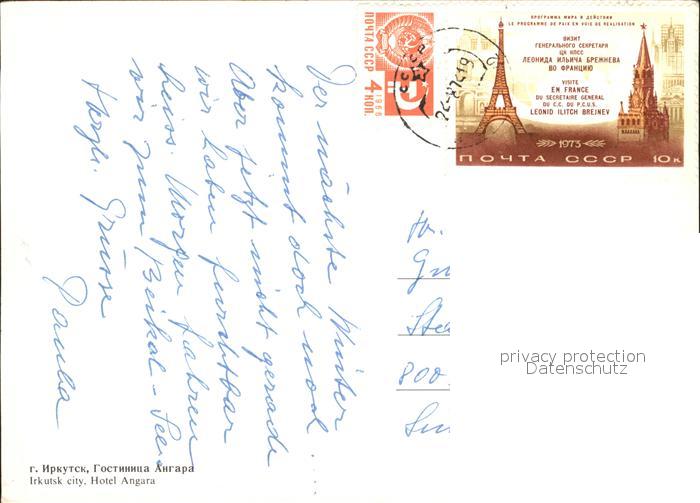 Der nächste Winter
kommt doch und
Aber jetzt nicht gerade
wir haben furchtbar
heiss. Morgen fahren
wir zum Beikal-See
Herzl. Grüsse
Paula
г. Иркутск, Гостиница Ангара
Irkutsk city, Hotel Angara
ПОЧТА СССР
4 КОП.
1966
СССР
ПРОГРАММА МИРА В ДЕЙСТВИИ
LE PROGRAMME DE PAIX EN VOIE DE RÉALISATION
ВИЗИТ
ГЕНЕРАЛЬНОГО СЕКРЕТАРЯ
ЦК КПСС
ЛЕОНИДА ИЛЬИЧА БРЕЖНЕВА
ВО ФРАНЦИЮ
VISITE
EN FRANCE
DU SECRETAIRE GENERAL
DU C.C. DU P.C.U.S.
LEONID ILITCH BREJNEV
1973
ПОЧТА СССР 10к
800
privacy protection
Datenschutz